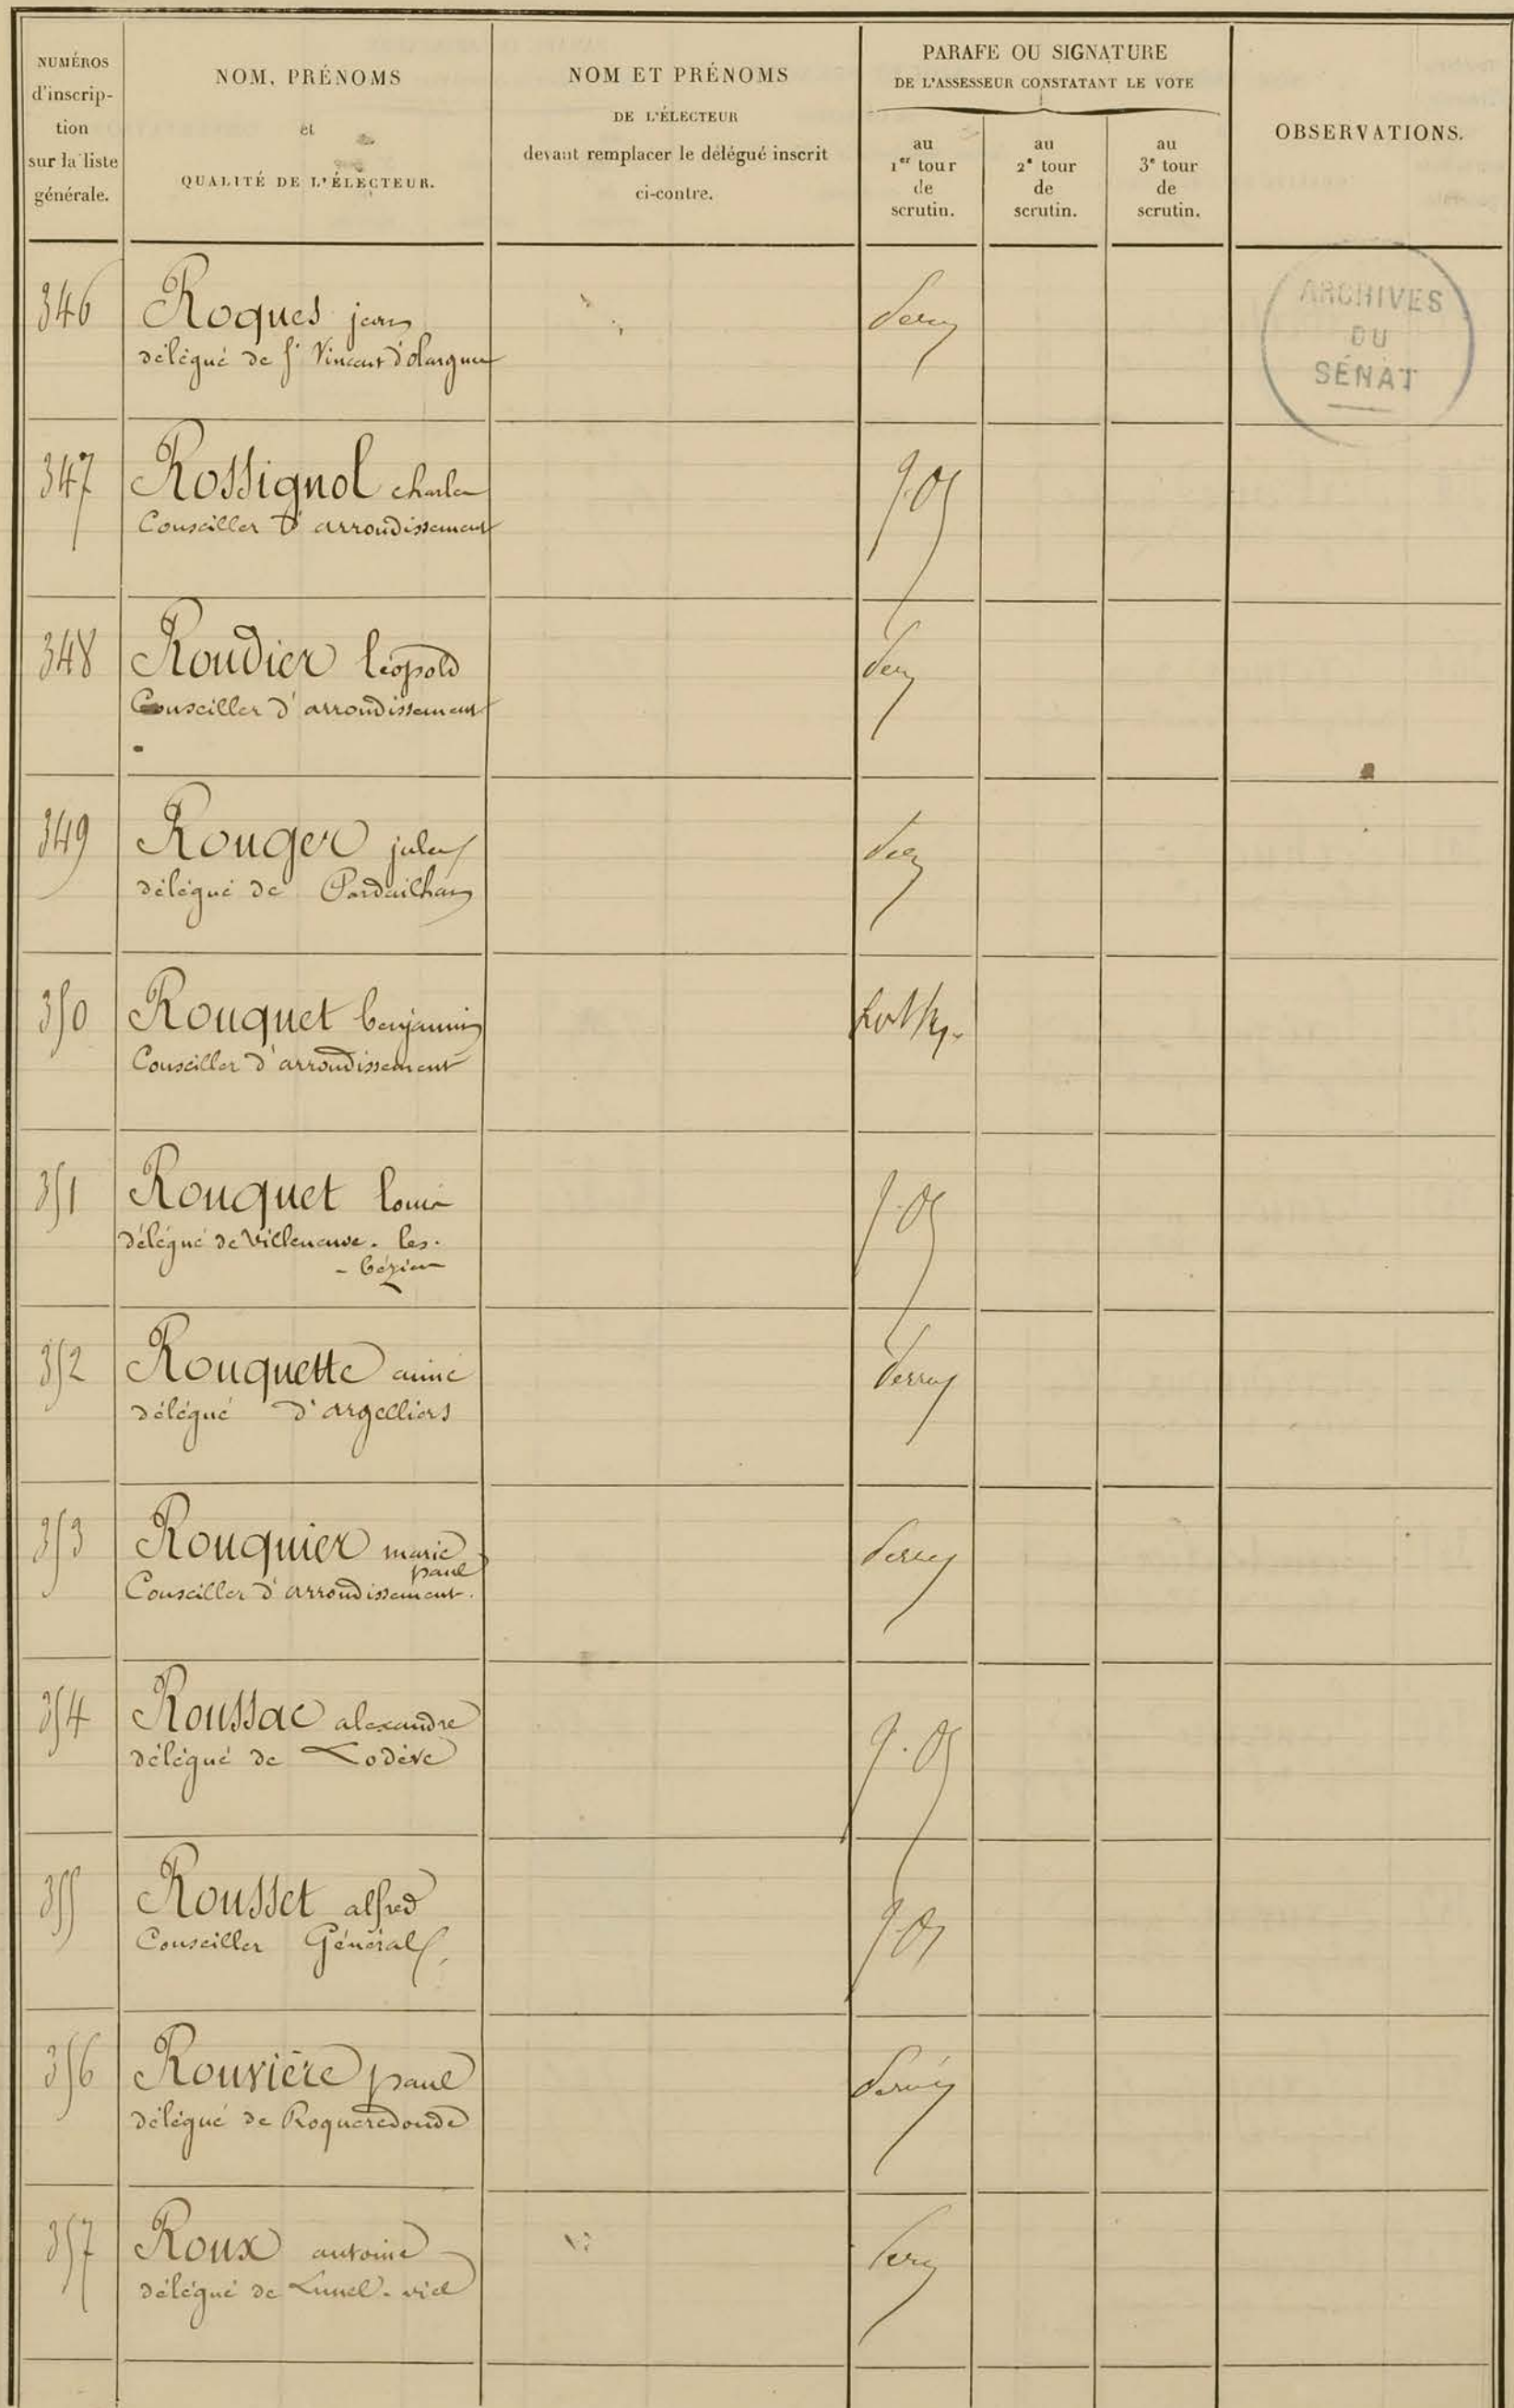 NUMÉROS
d'inscrip-
tion
sur la liste
générale.
NOM, PRÉNOMS
et
QUALITÉ DE L'ÉLECTEUR.
NOM ET PRÉNOMS
DE L'ÉLECTEUR
devant remplacer le délégué inscrit
ci-contre.
PARAFE OU SIGNATURE
DE L'ASSESSEUR CONSTATANT LE VOTE
au
1er tour
de
scrutin.
au
2e tour
de
scrutin.
au
3e tour
de
scrutin.
OBSERVATIONS.
ARCHIVES
DU
SÉNAT
346 Roques jean
délégué de St Vincent d'olargues
347 Rossignol charles
Conseiller d'arrondissement
348 Roudier léopold
Conseiller d'arrondissement
349 Rouger jules
délégué de Pardailhan
350 Rouquet benjamin
Conseiller d'arrondissement
351 Rouquet louis
délégué de Villeneuve-les-
-béziers
352 Rouquette aimé
délégué d'argelliers
353 Rouquier marie
paul
Conseiller d'arrondissement.
354 Roussac alexandre
délégué de Lodève
355 Rousset alfred
Conseiller Général
356 Rouvière paul
délégué de Roqueredonde
357 Roux antoine
délégué de Lunel-viel